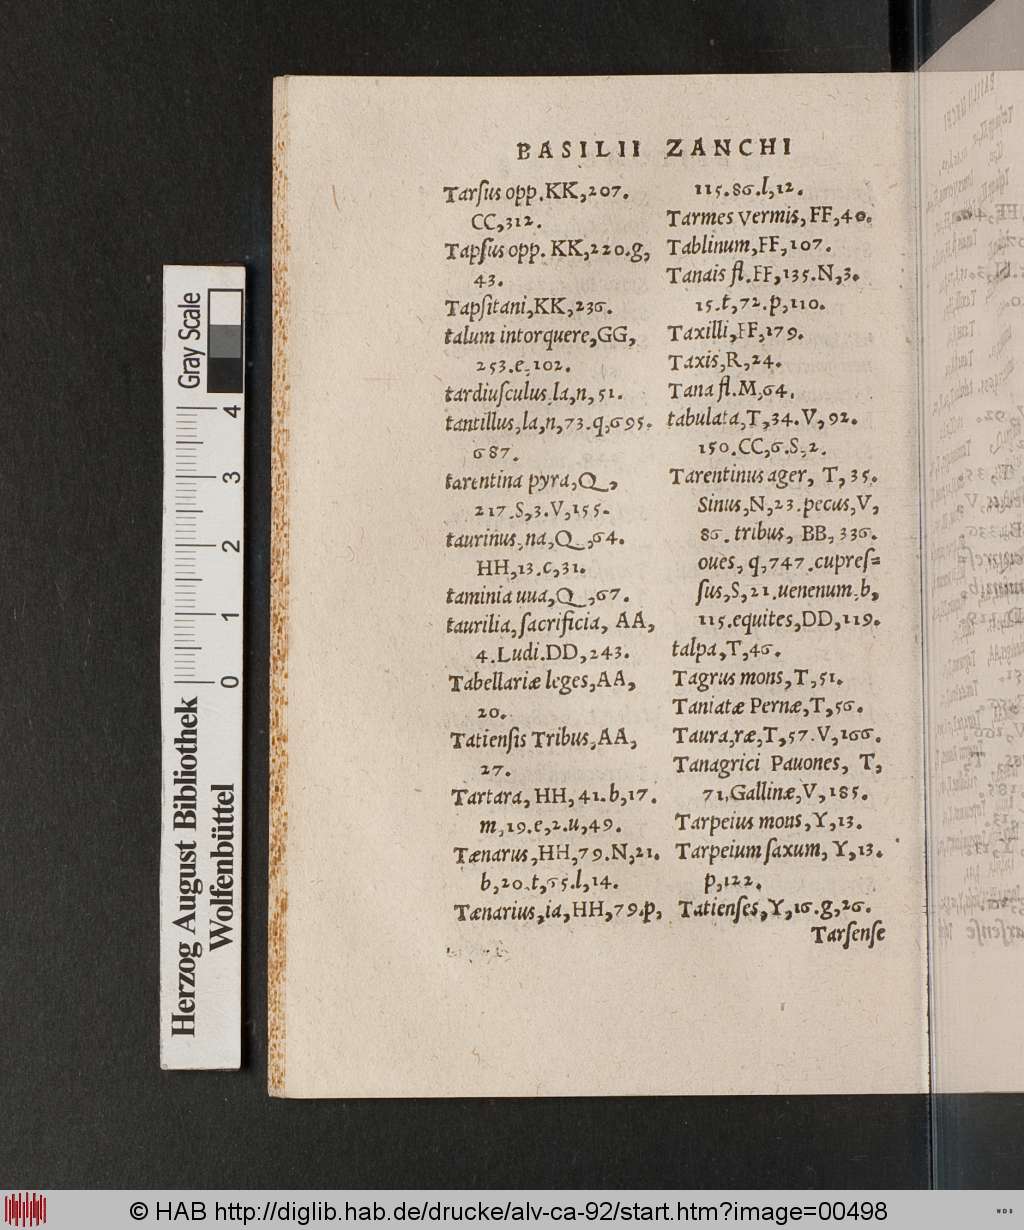 BASILII ZANCHI
Tarſus opp.KK,207.
CC,312.
Tapſus opp. KK,220.g,
43.
Tapſitani,KK,236.
talum intorquere,GG,
253.e,102.
tardiuſculus,la,n,51.
tantillus,la,n,73.q,695.
687.
tarentina pyra,Q,
217.S,3.V,155.
taurinus,na,Q,64.
HH,13.c,31.
taminia uua,Q,67.
taurilia,ſacrificia, AA,
4.Ludi.DD,243.
Tabellariæ leges,AA,
20.
Tatienſis Tribus,AA,
27.
Tartara, HH,41.b,17.
m,19.e,2.u,49.
Tænarus,HH,79.N,21.
b,20.t,65.l,14.
Tænarius,ia,HH,79.p,
115.86.l,12.
Tarmes vermis,FF,40.
Tablinum,FF,107.
Tanais fl.FF,135.N,3.
15.t,72.p,110.
Taxilli,FF,179.
Taxis,R,24.
Tana fl.M,64.
tabulata,T,34.V,92.
150.CC,6.S,2.
Tarentinus ager, T,35.
Sinus,N,23.pecus,V,
86.tribus, BB,336.
oues, q,747.cupreſ=
ſus,S,21.uenenum,b,
115.equites,DD,119.
talpa,T,46.
Tagrus mons,T,51.
Taniatæ Pernæ,T,56.
Taura,ræ,T,57.V,166.
Tanagrici Pauones, T,
71,Gallinæ,V,185.
Tarpeius mons,Y,13.
Tarpeium ſaxum, Y,13.
p,122.
Tatienſes,Y,16.g,26.
Tarſenſe
Gray Scale
4
3
2
1
0
Herzog August Bibliothek
Wolfenbüttel
© HAB http://diglib.hab.de/drucke/alv-ca-92/start.htm?image=00498
WDB